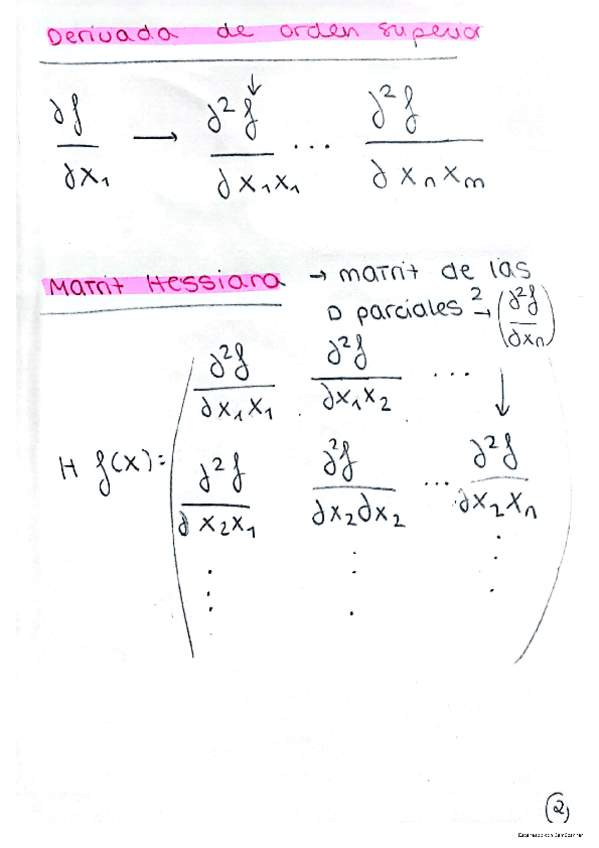 Derivada de orden superior
∂f/∂x₁ → ∂²f/∂x₁x₁ ... ∂²f/∂xₙxₘ
Matriz Hessiana → matriz de las
D parciales ² → (∂²f/∂xₙ)
∂²f/∂x₁x₁ ∂²f/∂x₁x₂ ...
H f(x): ∂²f/∂x₂x₁ ∂²f/∂x₂∂x₂ ... ∂²f/∂x₂xₙ
2
Escaneado con CamScanner